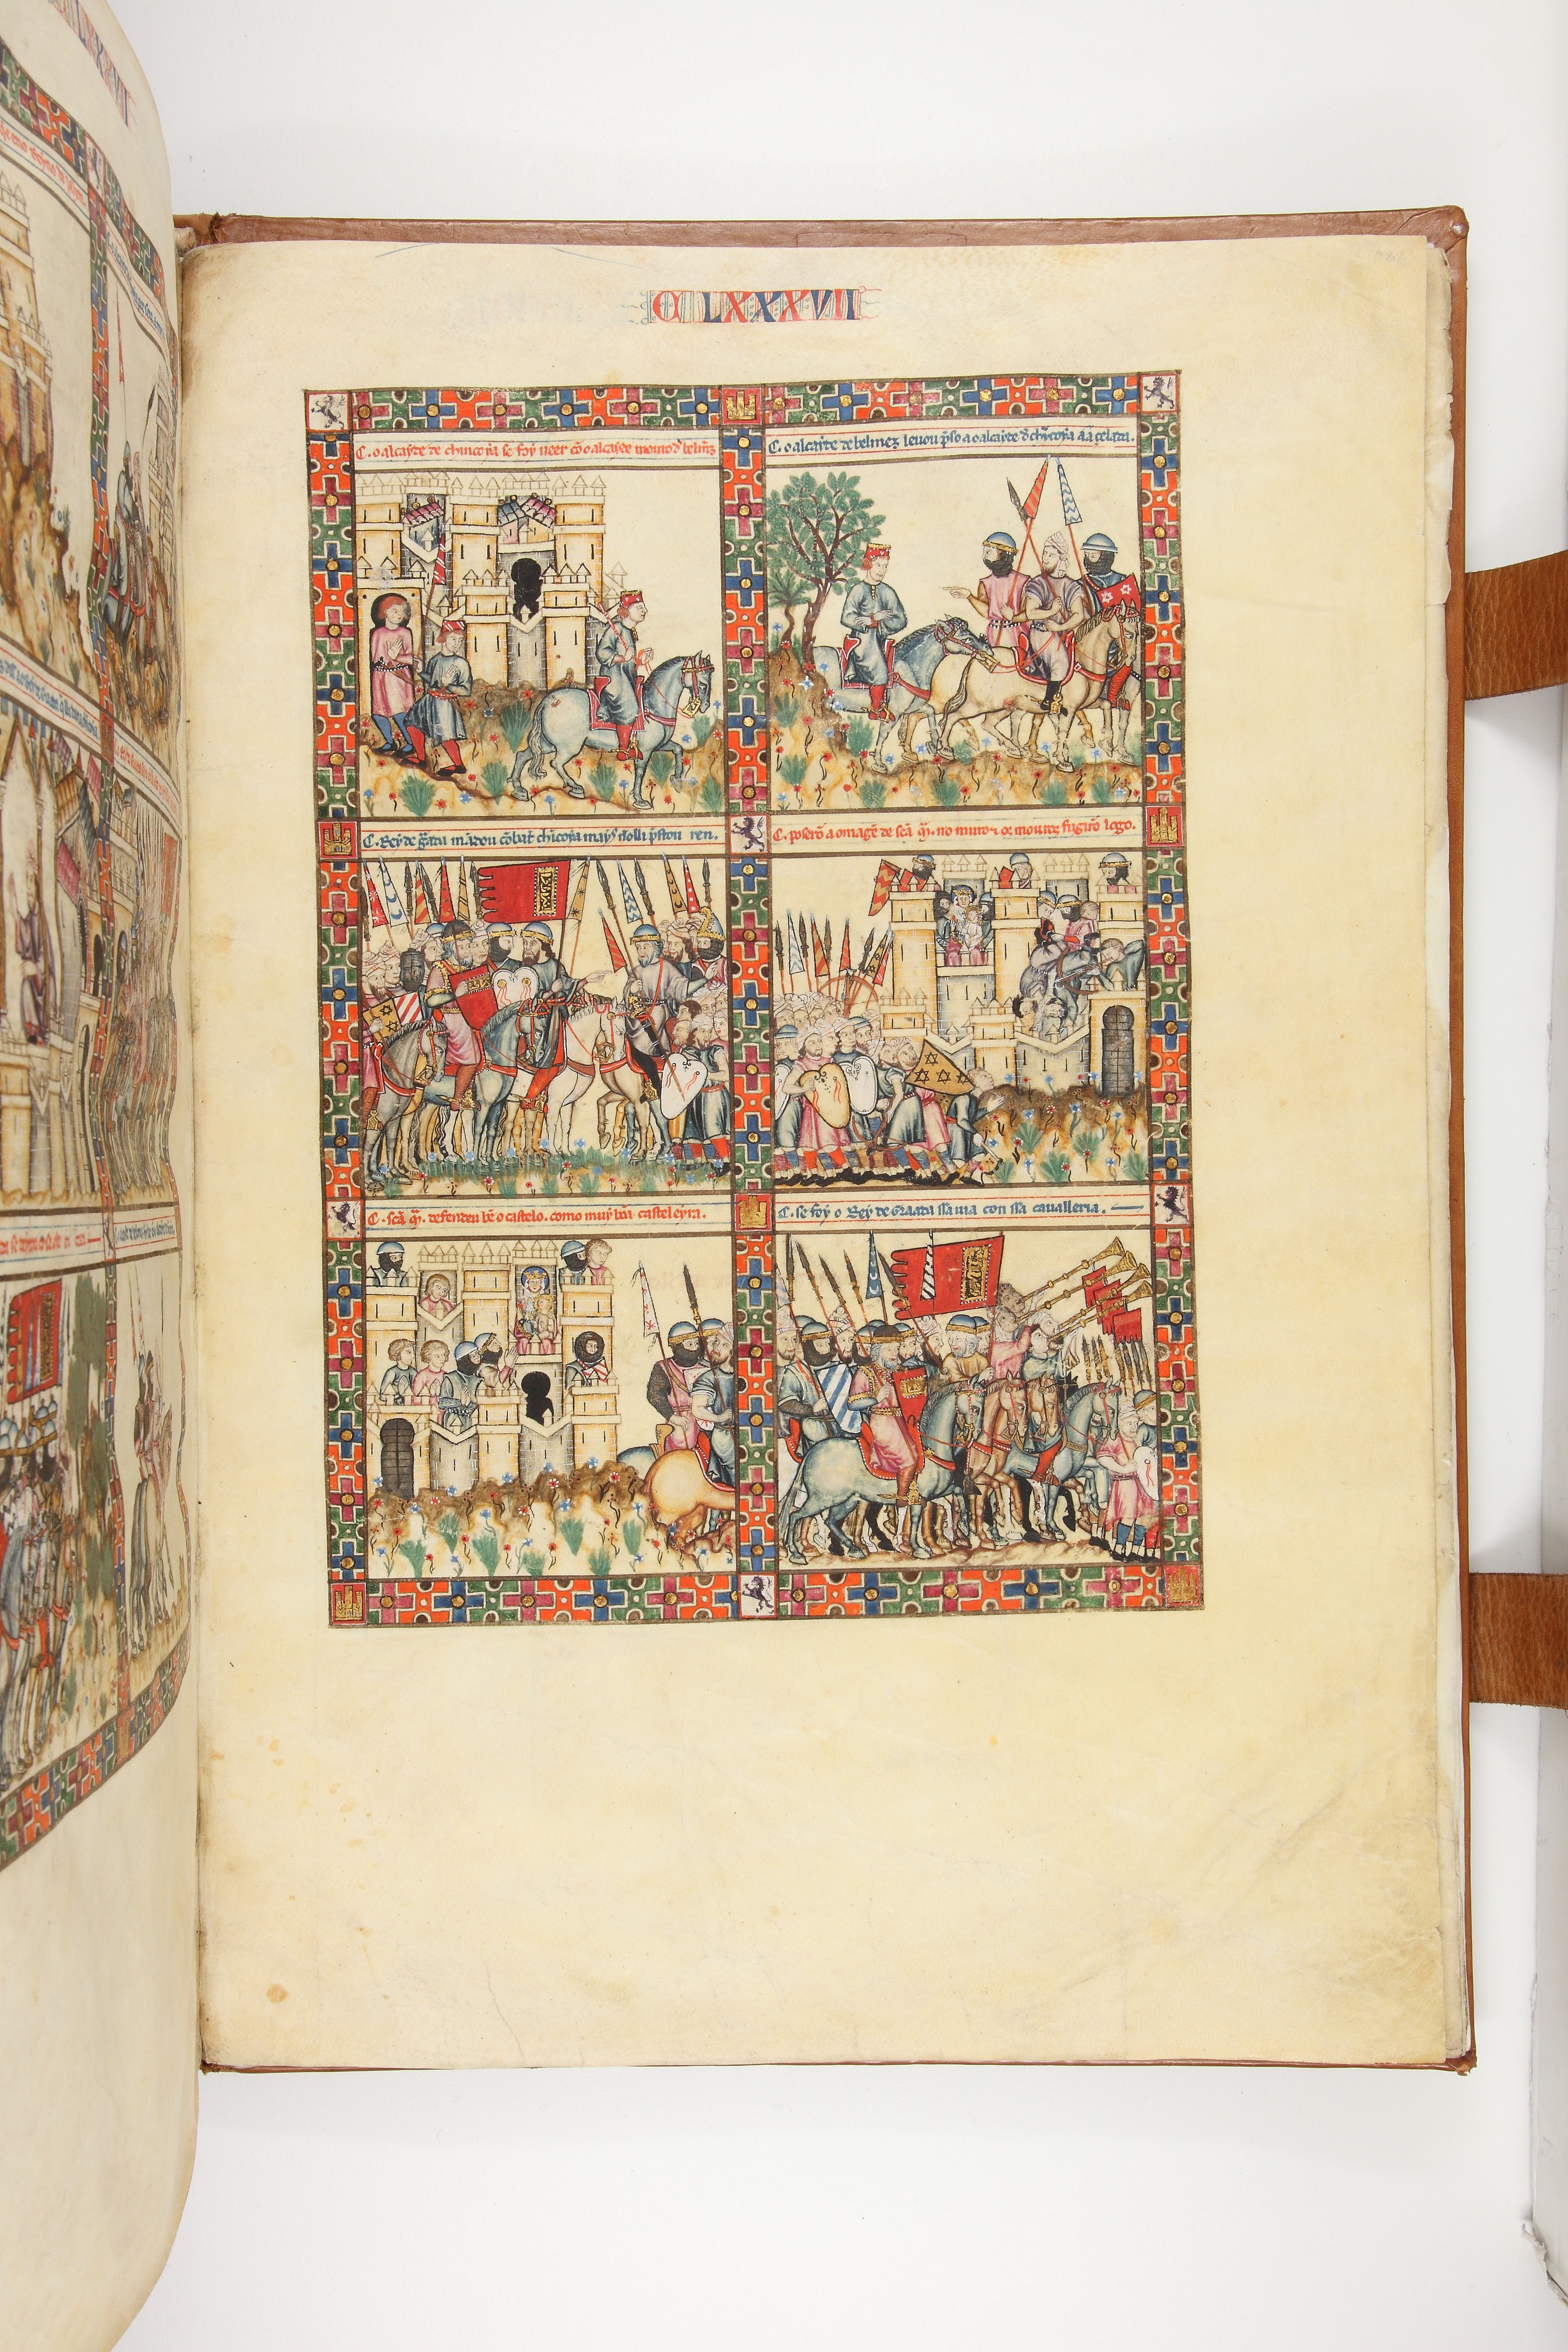 C LXXXVII
C. o alcayde de chincoya se foy ueer cõ o alcayde mouro d' belmez
C. o alcayde de belmez leuou p̃so a o alcayde d' chĩcoya aa çelata.
C. Rey de g̃ada mãdou cõbat̃ chĩcoya mays nõlli p̃stou ren.
C. poserõ a omagẽ de scã m̃. no muro ⁊ os mouros fugirõ logo.
C. scã m̃. defendeu bẽ o castelo. como muy bõa casteleyra.
C. se foy o Rey de Graada ssa uia con ssa caualleria.